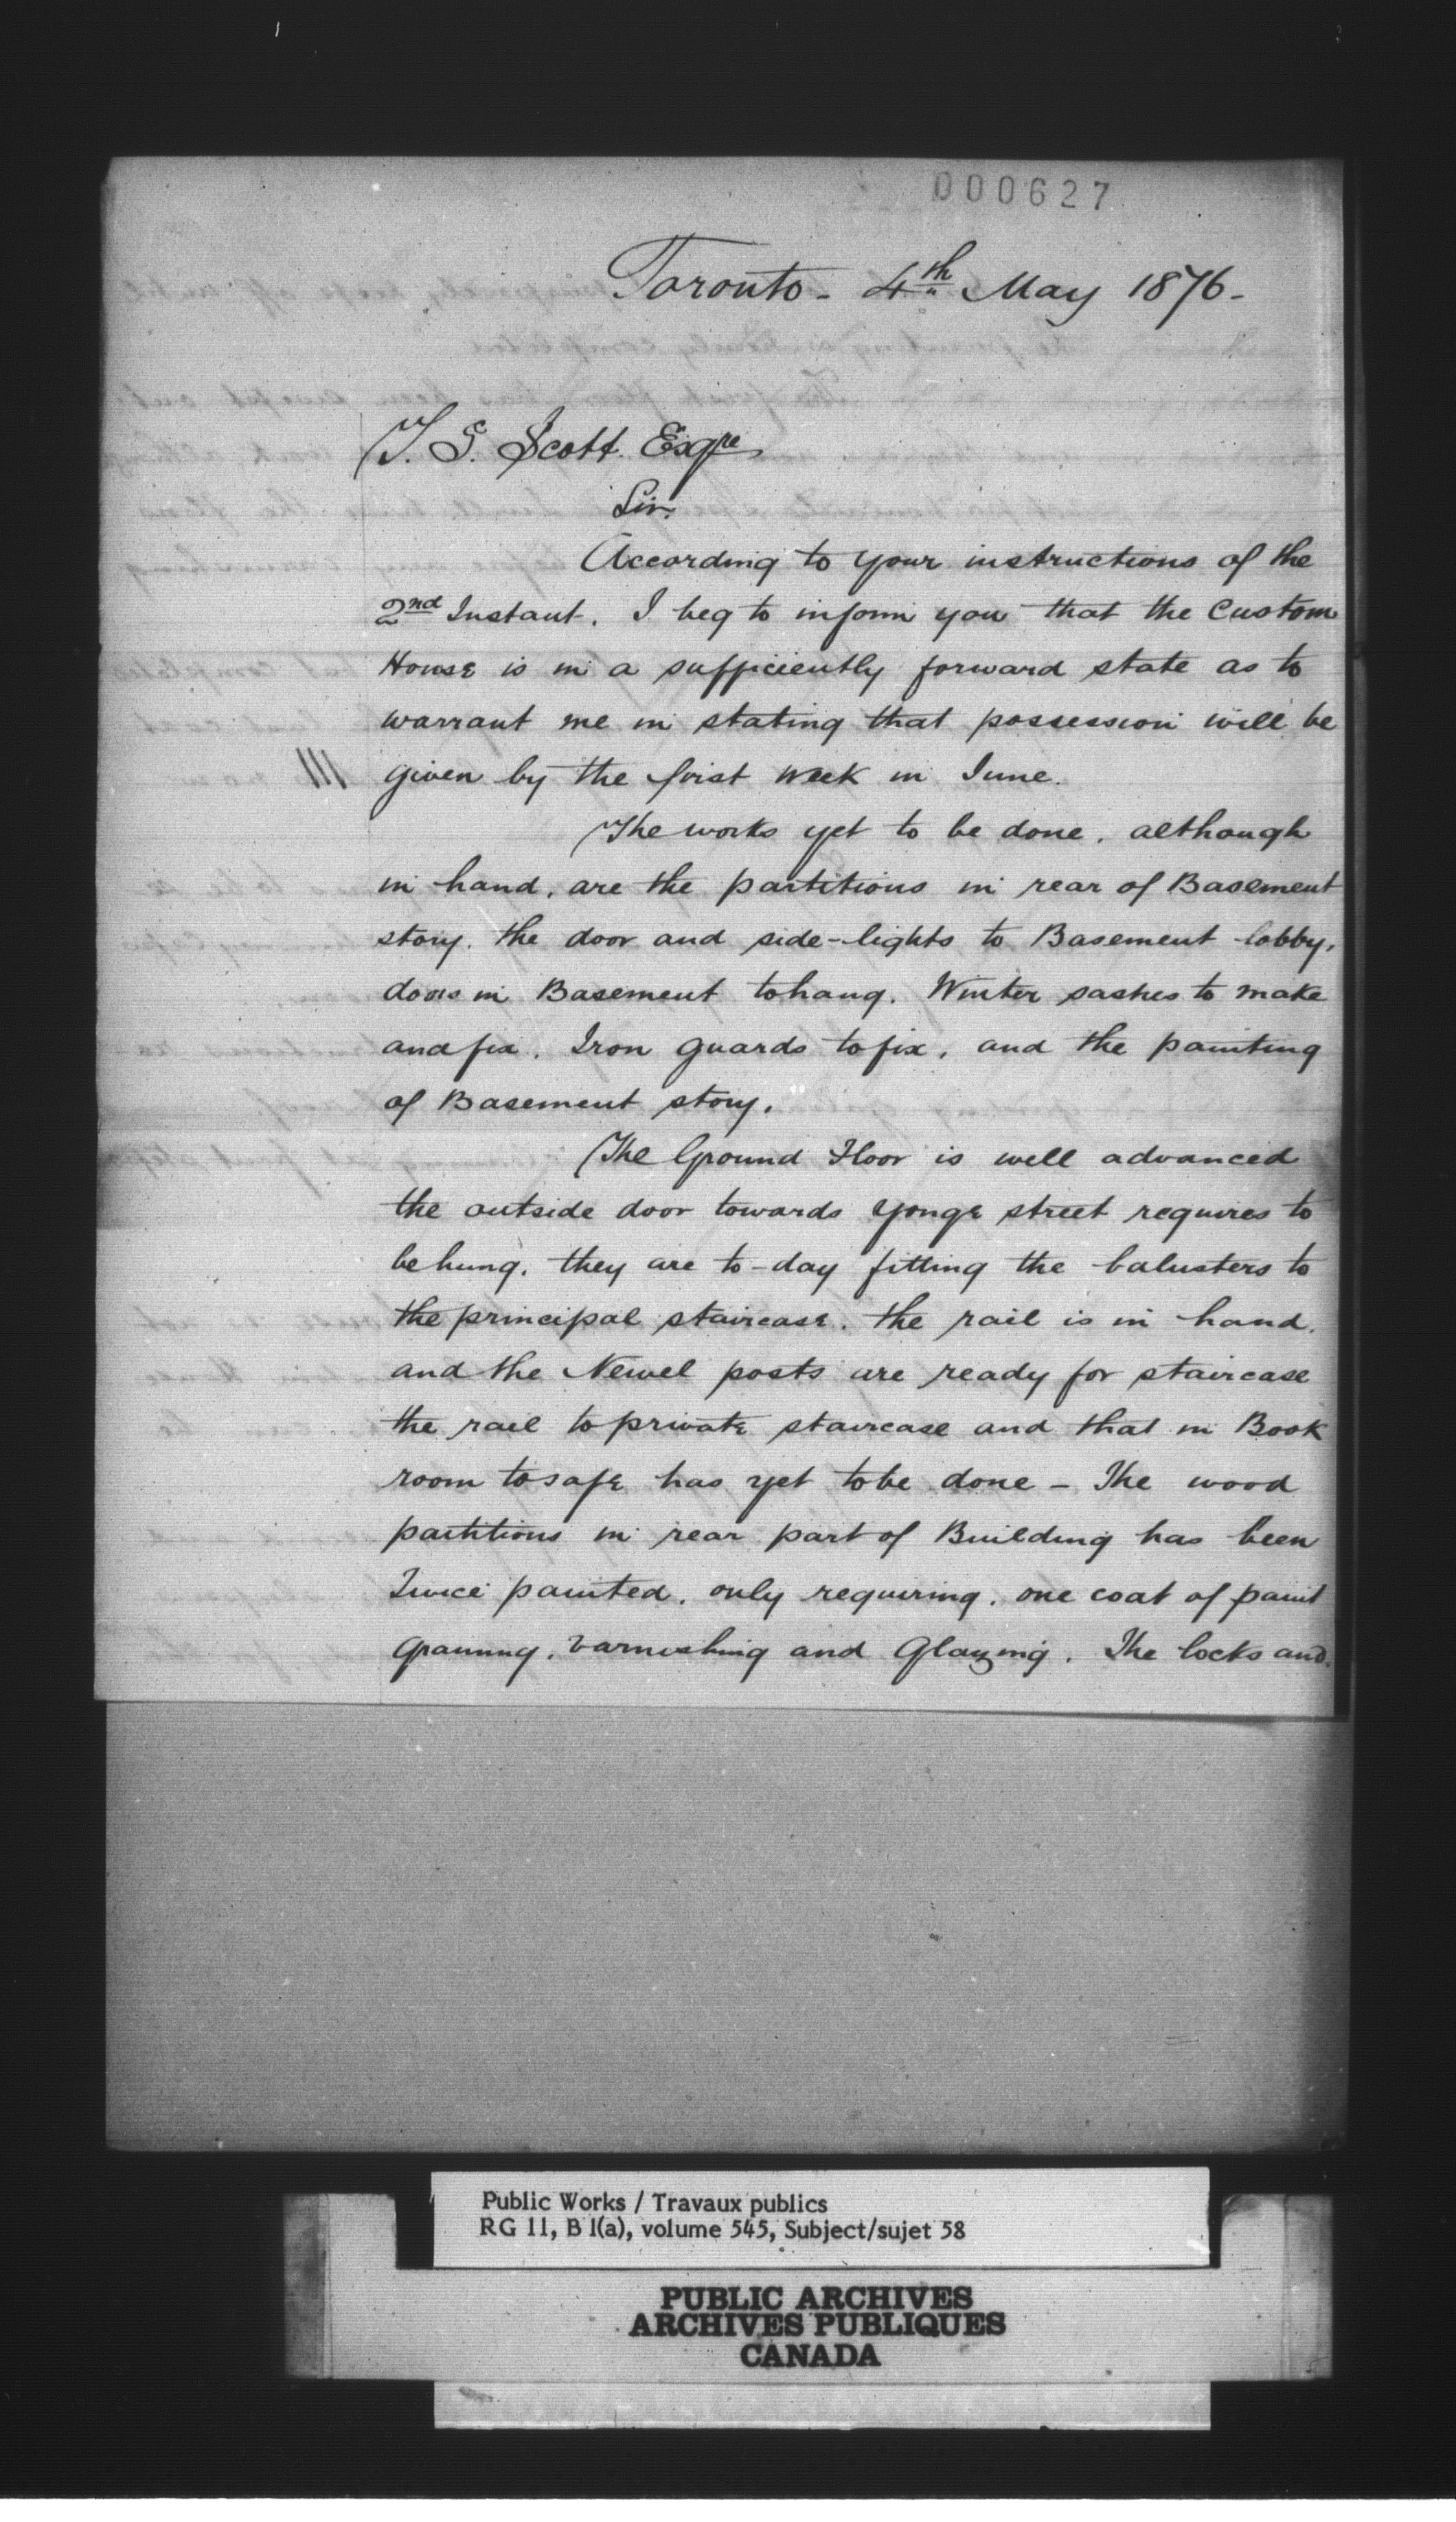 000627
Toronto - 4th May 1876 -
T. S. Scott. Esqre
Sir.
According to your instructions of the
2nd Instant. I beg to inform you that the Custom
House is in a sufficiently forward state as to
warrant me in stating that possession will be
given by the first week in June.
The works yet to be done. although
in hand. are the partitions in rear of Basement
story. the door and side-lights to Basement lobby,
doors in Basement to hang. Winter sashes to make
and fix. Iron guards to fix, and the painting
of Basement story.
The Ground Floor is well advanced
the outside door towards Yonge street requires to
be hung. they are to-day fitting the balusters to
the principal staircase. the rail is in hand.
and the Newel posts are ready for staircase
the rail to private staircase and that in Book
room to safe has yet to be done - The wood
partitions in rear part of Building has been
Twice painted. only requiring. one coat of paint
Graining. Varnishing and Glazing. The locks and
Public Works / Travaux publics
RG 11, B 1(a), volume 545, Subject/sujet 58
PUBLIC ARCHIVES
ARCHIVES PUBLIQUES
CANADA